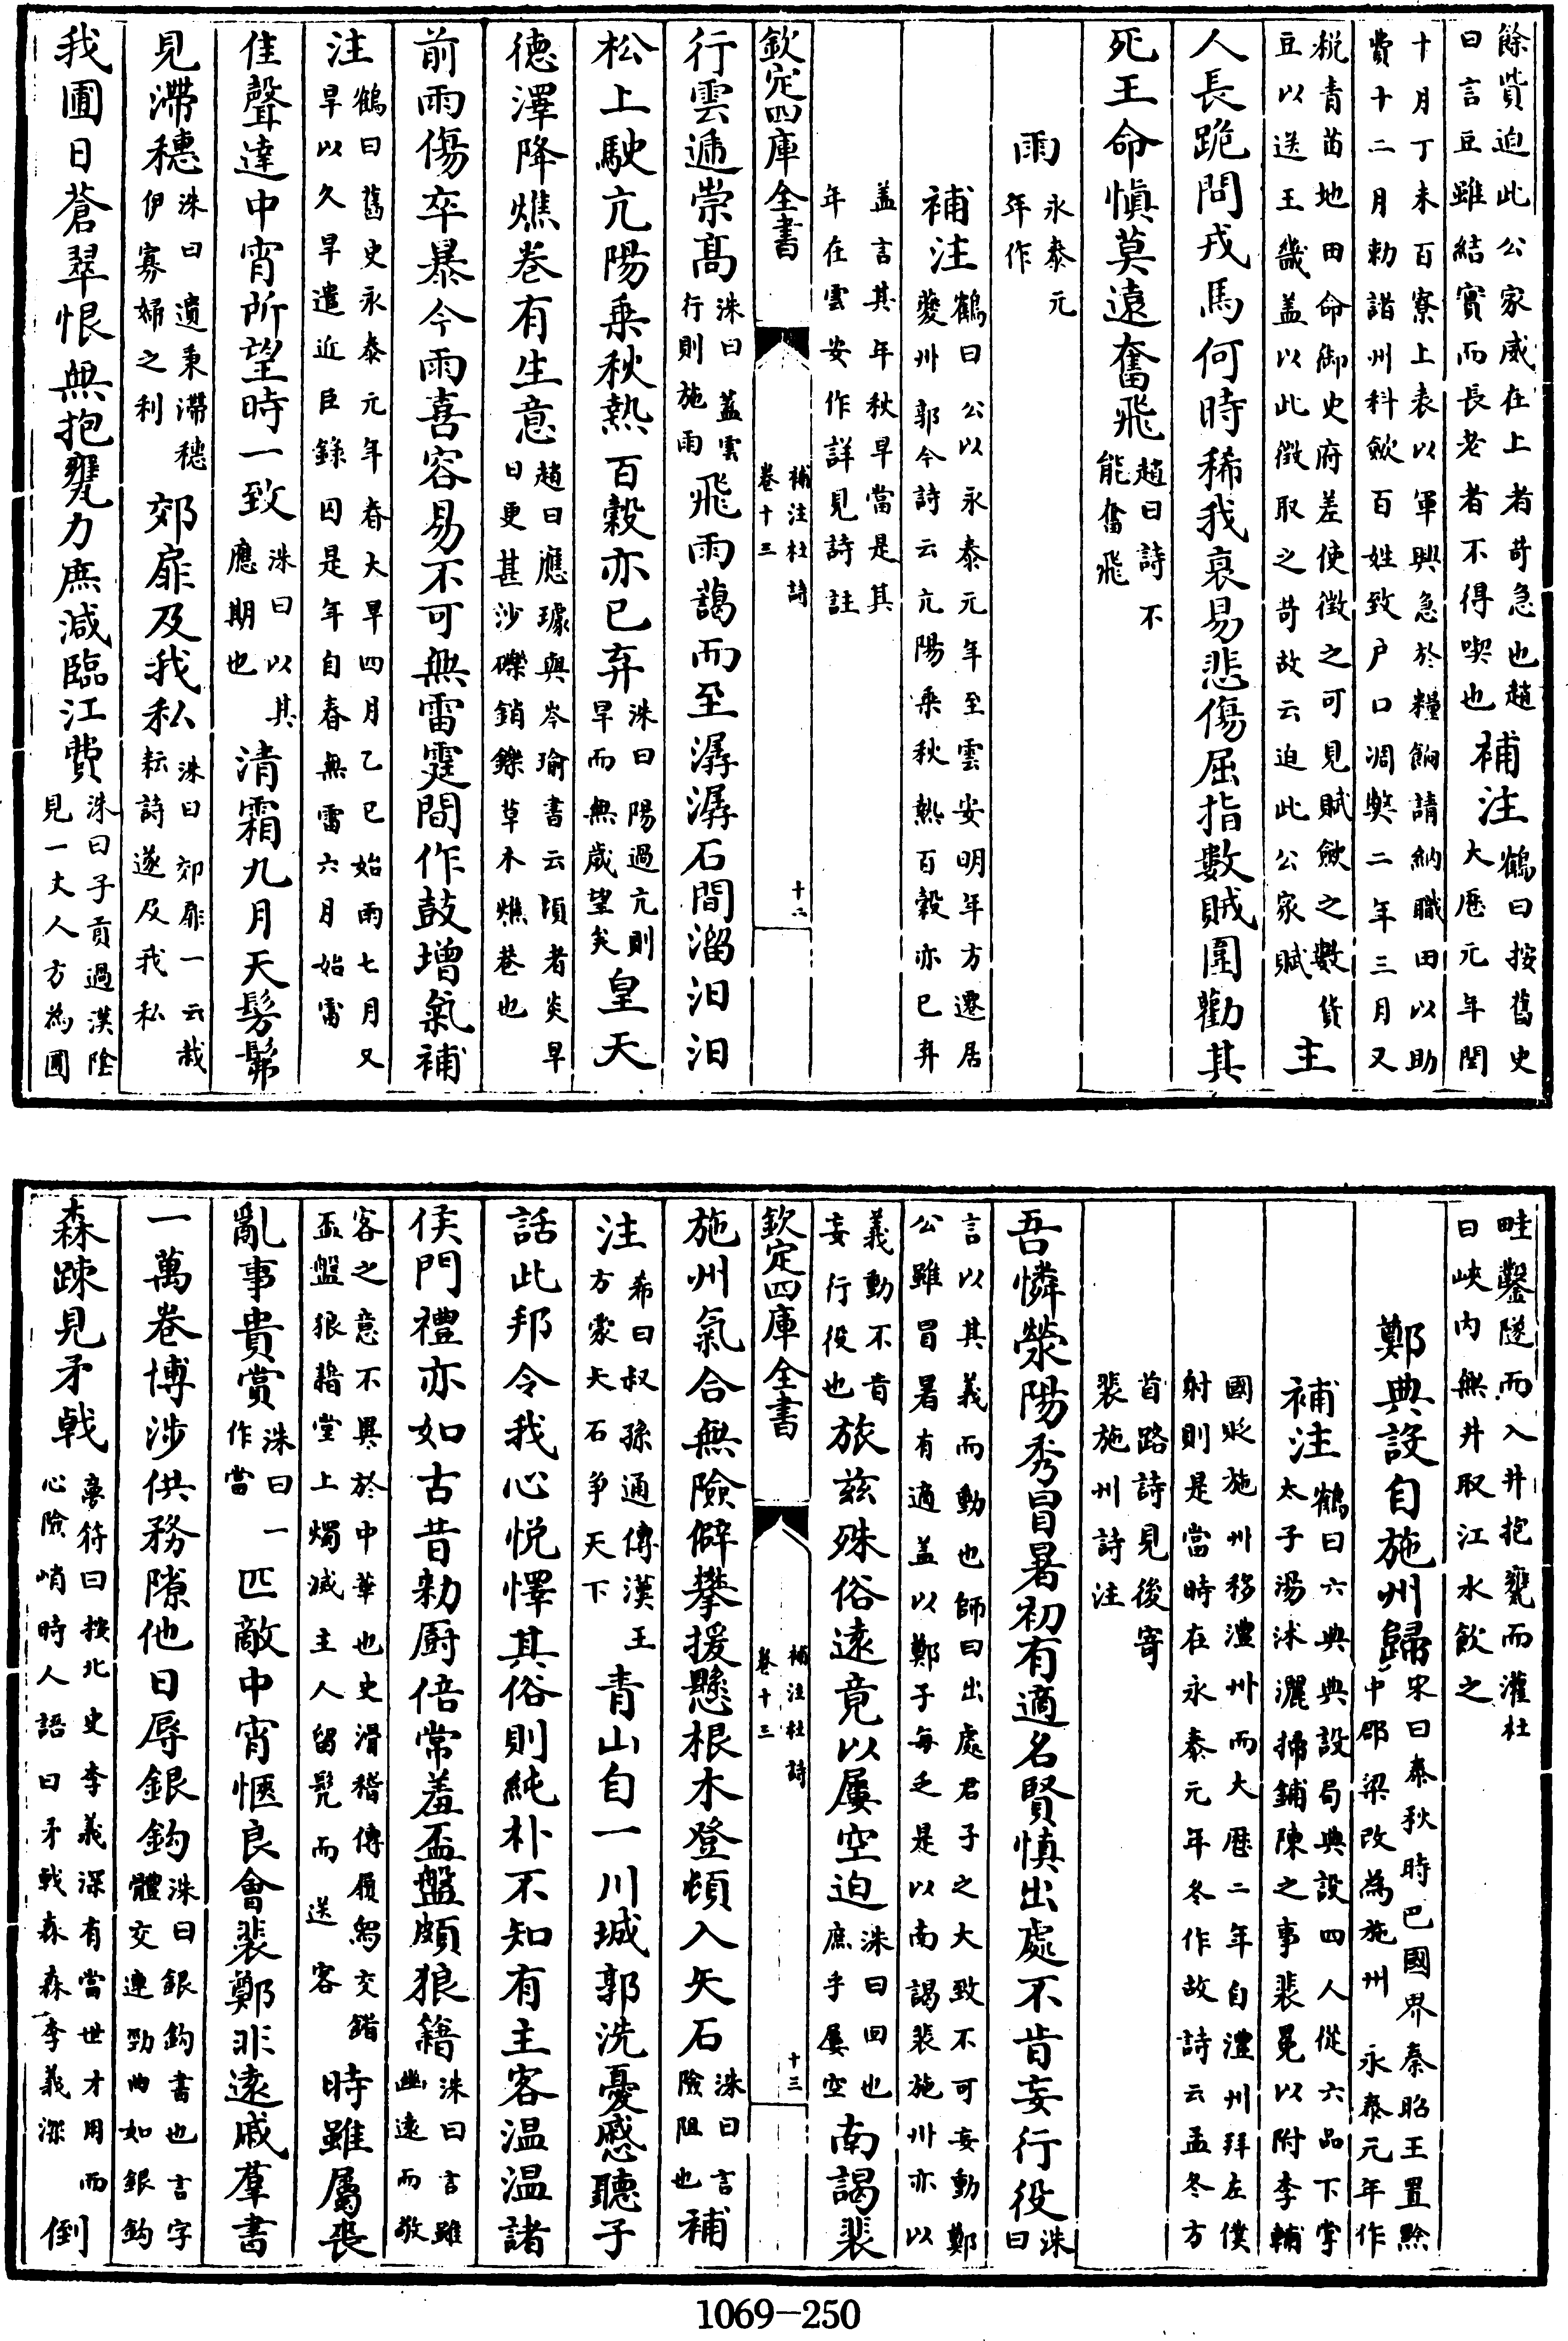 餘貲迫此公家威在上者苛急也趙
曰言豆雖結實而長老者不得喫也補注鶴曰按舊史
大厯元年閏
十月丁未百寮上表以軍興急於糧餉請納職田以助
費十二月勅諸州科歛百姓致户口凋弊二年三月又
税青苗地田命御史府差使徴之可見賦斂之數貨
豆以送王畿盖以此徴取之苛故云迫此公家賦主
人長跪問戎馬何時稀我衰易悲傷屈指數賊圍勸其
死王命慎莫遠奮飛趙曰詩不
能奮飛
雨永泰元
年作
補注鶴曰公以永泰元年至雲安明年方遷居
夔州郭今詩云亢陽乘秋熱百穀亦已弃
盖言其年秋旱當是其
年在雲安作詳見詩註
欽定四庫全書
補注杜詩
卷十三
十二
行雲遞崇髙洙曰蓋雲
行則施雨飛雨藹而至潺潺石間溜汨汨
松上駛亢陽乘秋熱百穀亦已弃洙曰陽過亢則
旱而無歲望矣皇天
德澤降燋卷有生意趙曰應璩與岑瑜書云頃者炎旱
日更甚沙礫銷鑠草木燋巷也
前雨傷卒暴今雨喜容易不可無雷霆間作鼓增氣補
注鶴曰舊史永泰元年春大旱四月乙巳始雨七月又
旱以久旱遣近臣錄囚是年自春無雷六月始雷
佳聲達中宵所望時一致洙曰以其
應期也清霜九月天髣髴
見滯穗洙曰遺秉滯穗
伊寡婦之利郊扉及我私洙曰郊扉一云栽
耘詩遂及我私
我圃日蒼翠恨無抱甕力庶減臨江費洙曰子貢過漢陰
見一丈人方為圃
畦鑿隧而入井抱甕而灌杜
曰峽内無井取江水飲之
鄭典設自施州歸宋曰春秋時巴國界秦昭王置黔
中郡梁改為施州 永泰元年作
補注鶴曰六典典設局典設四人從六品下掌
太子湯沐灑掃鋪陳之事裴冕以附李輔
國貶施州移澧州而大厯二年自澧州拜左僕
射則是當時在永泰元年冬作故詩云孟冬方
首路詩見後寄
裴施州詩注
吾憐滎陽秀冒暑初有適名賢慎出處不肯妄行役洙
曰
言以其義而動也師曰出處君子之大致不可妄動鄭
公雖冒暑有適盖以鄭子每乏是以南謁裴施州亦以
義動不肯
妄行役也旅兹殊俗遠竟以屢空迫洙曰回也
庶乎屢空南謁裴
欽定四庫全書
補注杜詩
卷十三
十三
施州氣合無險僻攀援懸根木登頓入矢石洙曰言
險阻也補
注希曰叔孫通傳漢王
方䝉矢石争天下青山自一川城郭洗憂慼聽子
話此邦令我心悦懌其俗則純朴不知有主客温温諸
侯門禮亦如古昔勅厨倍常羞盃盤頗狼籍洙曰言雖
幽遠而敬
客之意不異於中華也史滑稽傳履舄交錯
盃盤狼籍堂上燭滅主人留髠而送客時雖屬喪
亂事貴賞洙曰一
作當匹敵中宵愜良會裴鄭非逺戚羣書
一萬卷博涉供務隙他日辱銀鈎洙曰銀鈎書也言字
體交連勁曲如銀鈎
森疎見矛戟夢符曰按北史李義深有當世才用而
心險峭時人語曰矛戟森森李義深倒
1069-250